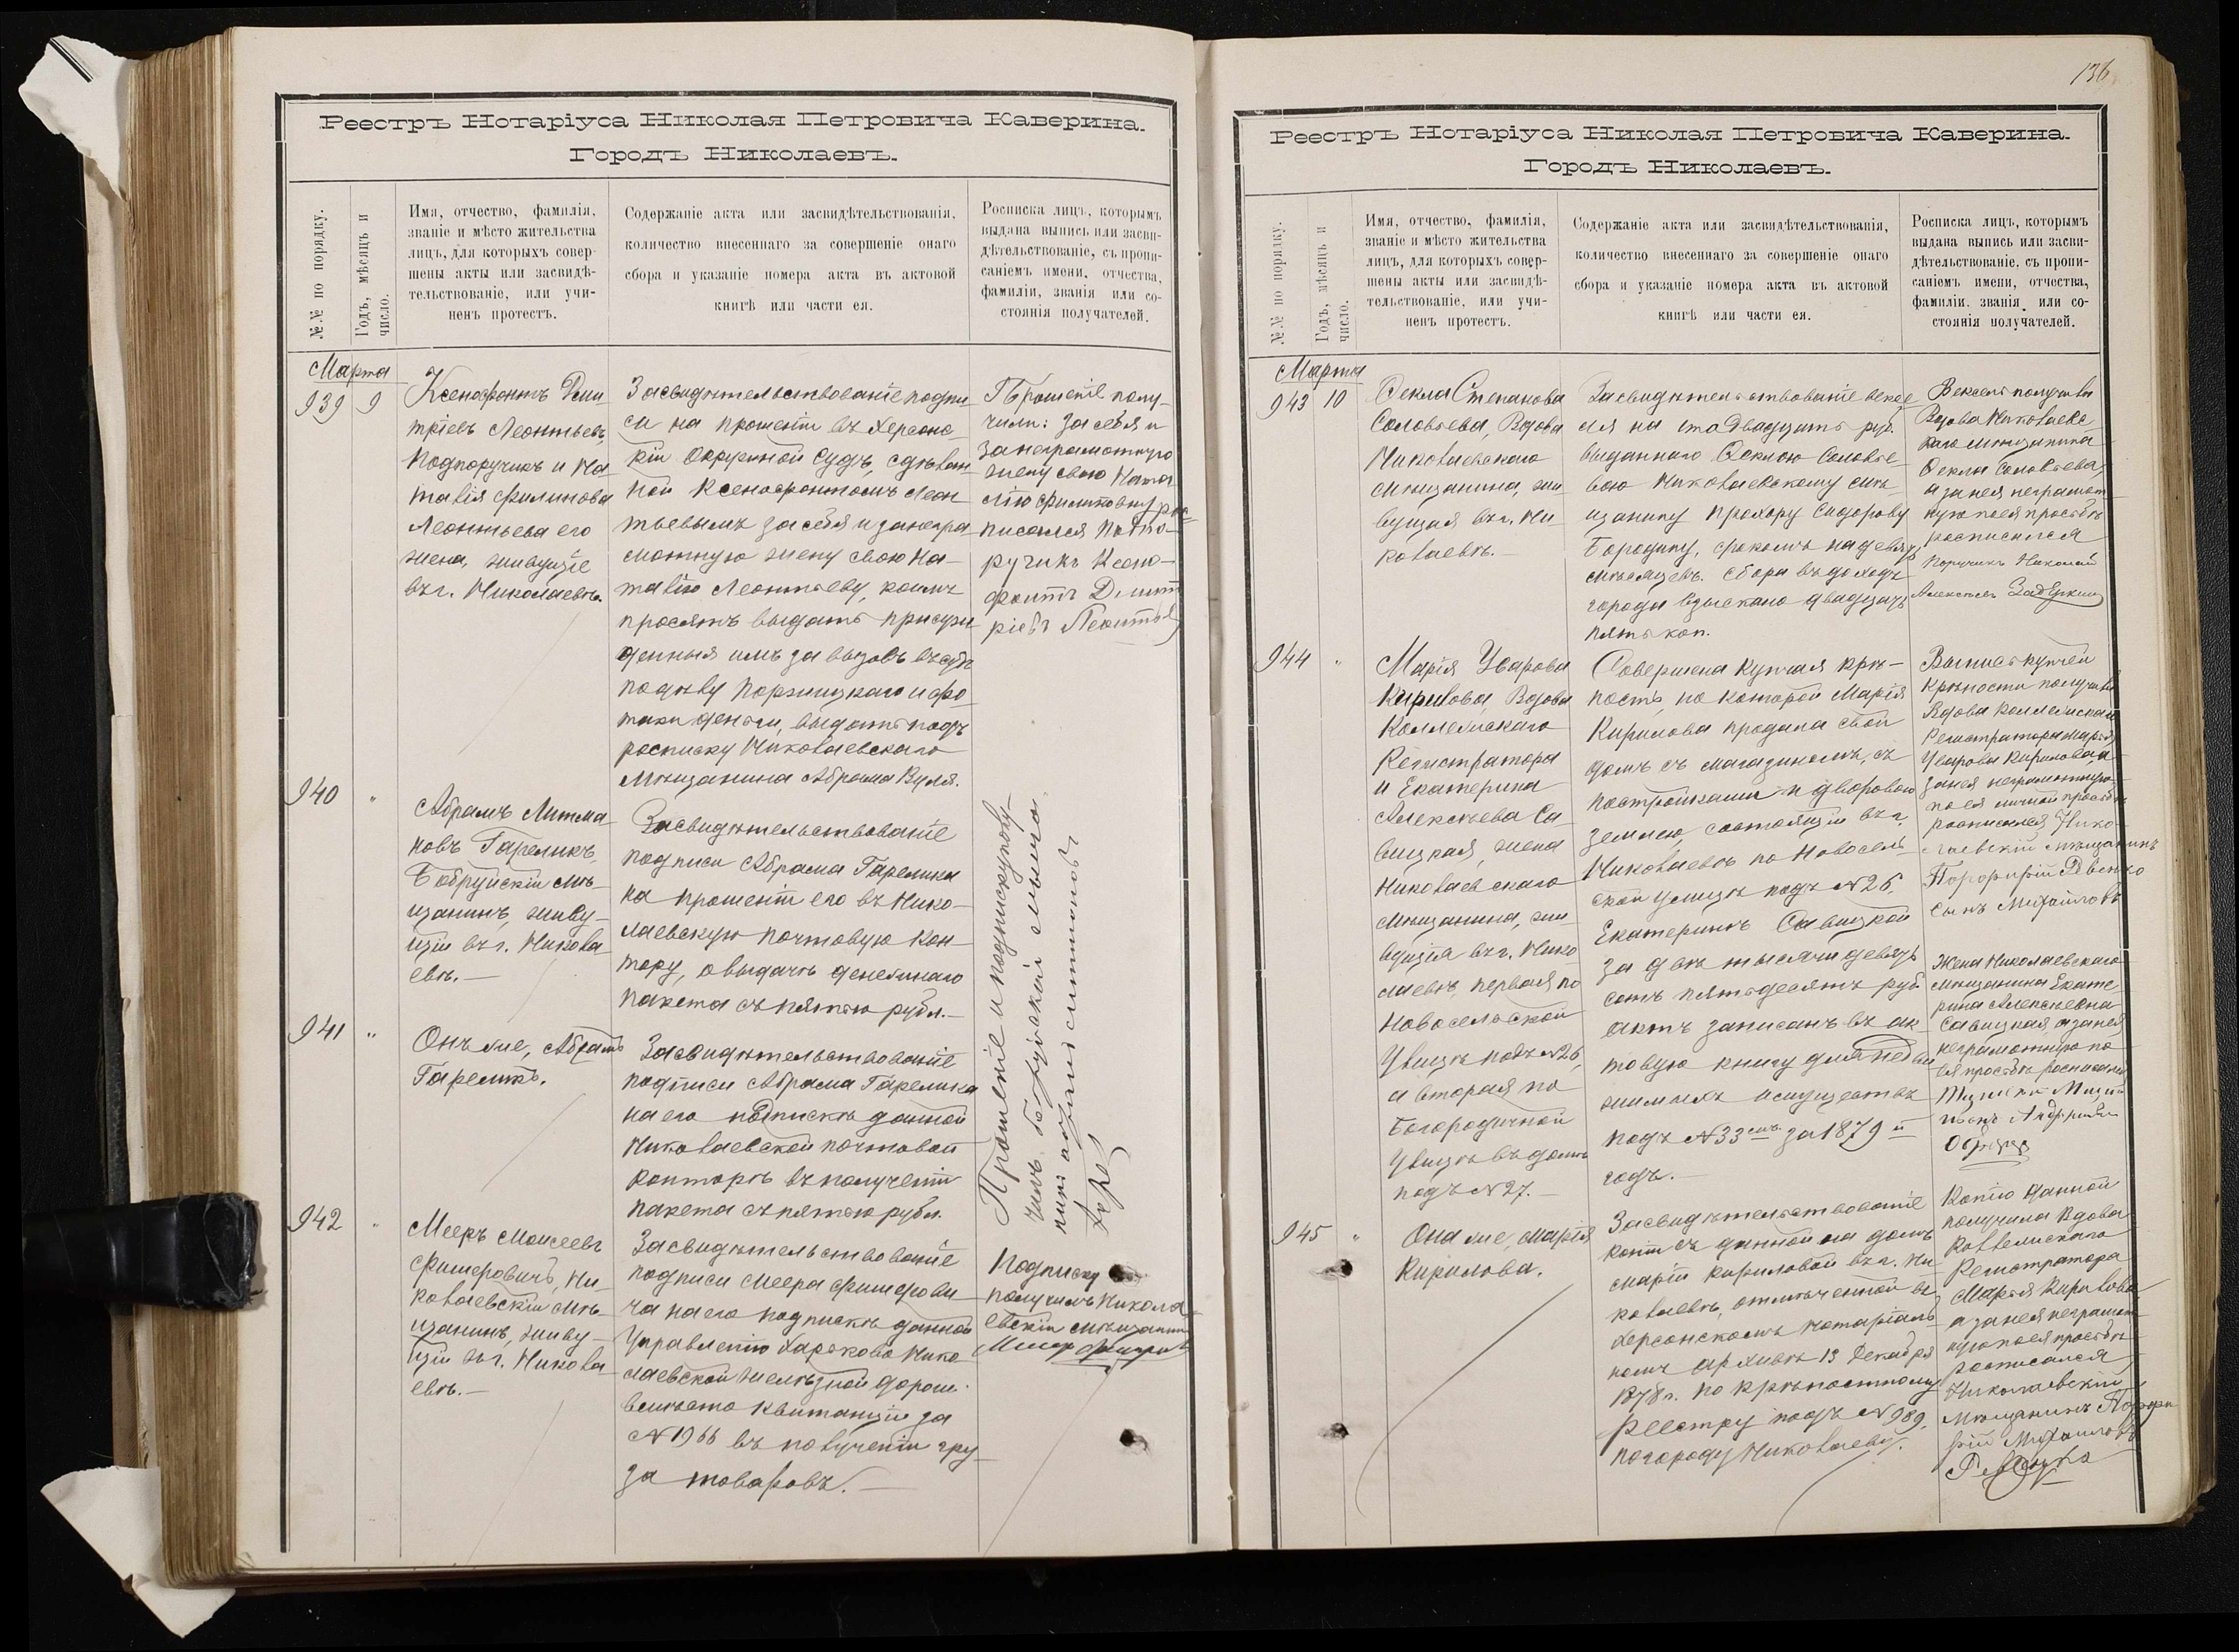 Реестръ Нотаріуса Николая Петровича Каверина.
Городъ Николаевъ.
№№ по порядку.
Годъ, мѣсяцъ и
число.
Имя, отчество, фамилія,
званіе и мѣсто жительства
лицъ, для которыхъ совер-
шены акты или засвидѣ-
тельствованіе, или учи-
ненъ протестъ.
Содержаніе акта или засвидѣтельствованія,
количество внесеннаго за совершеніе онаго
сбора и указаніе номера акта въ актовой
книгѣ или части ея.
Росписка лицъ, которымъ
выдана выпись или засви-
дѣтельствованіе, съ пропи-
саніемъ имени, отчества,
фамиліи, званія или со-
стоянія получателей.
Марта
939 9
Ксенофонтъ Дми
тріевъ Леонтьевъ,
Подпоручикъ и На
талія Филипова
Леонтьева его
жена, живущіе
въ г. Николаевѣ.
Засвидѣтельствованіе подпи
си на прошеніи въ Херсонс
кій Окружной Судъ, сдѣлан
ной Ксенофонтомъ Леон
тьевымъ за себя и за негра
мотную жену свою На-
талію Леонтьеву, коимъ
просятъ выдать присуж
денныя имъ за вызовъ въ судъ
по дѣлу
деньги, выдать подъ
росписку Николаевскаго
Мѣщанина Абрама Вуля.
Прошеніе полу-
чили: за себя и
за неграмотную
жену свою Ната
лію Филиповну рос-
писался Подпо-
ручикъ Ксено-
фонтъ Дмит
ріевъ Леонтьев
940 "
Абрамъ Литма
новъ Гареликъ,
Бобруйскій мѣ-
щанинъ, живу-
щій въ г. Никола
евѣ.—
Засвидѣтельствованіе
подписи Абрама Гарелика
на прошеніи его въ Нико-
лаевскую почтовую кон-
тору, о выдачѣ денежнаго
пакета съ пятью рубл.—
Прошеніе и подписку полу-
чилъ бобруйскій мѣща-
нинъ абрамъ литманов
941 "
Онъ же, Абрамъ
Гареликъ.
Засвидѣтельствованіе
подписи Абрама Гарелика
на его подпискѣ данной
Николаевской почтовой
конторѣ въ полученіи
пакета съ пятью рубл.
942 "
Мееръ Моисеевъ
Фишеровичъ, Ни-
колаевскій мѣ-
щанинъ, живу-
щій въ г. Никола
евѣ.—
Засвидѣтельствованіе
подписи Меера Фишерови
ча на его подпискѣ данной
Управленію Харьково Нико
лаевской желѣзной дороги
вмѣсто квитанціи за
№ 1966 въ полученіи гру
за товаровъ.—
Подписку
получилъ Никола
евскій мѣщанин
Меер
136
Реестръ Нотаріуса Николая Петровича Каверина.
Городъ Николаевъ.
№№ по порядку.
Годъ, мѣсяцъ и
число.
Имя, отчество, фамилія,
званіе и мѣсто жительства
лицъ, для которыхъ совер-
шены акты или засвидѣ-
тельствованіе, или учи-
ненъ протестъ.
Содержаніе акта или засвидѣтельствованія,
количество внесеннаго за совершеніе онаго
сбора и указаніе номера акта въ актовой
книгѣ или части ея.
Росписка лицъ, которымъ
выдана выпись или засви-
дѣтельствованіе, съ пропи-
саніемъ имени, отчества,
фамиліи, званія или со-
стоянія получателей.
Марта
943 10
Ѳекла Степанова
Соловьева, Вдова
Николаевскаго
мѣщанина, жи
вущая въ г. Ни
колаевѣ.—
Засвидѣтельствованіе вексе
ля на сто двадцать руб.
выданнаго Ѳеклою Соловье-
вою Николаевскому мѣ-
щанину Прохору Сидорову
Бородину, срокомъ на девять
мѣсяцевъ. Сбора въ доходъ
города взыскано двадцать
пять коп.
Вексель получила
Вдова Николаевс
каго мѣщанина
Ѳекла Соловьева,
а за нея неграмот
ную по ея просьбѣ
росписался
Поручикъ Николай
Алексѣев
944 "
Марія Уварова
Кирилова, Вдова
Коллежскаго
Регистратора
и Екатерина
Алексѣева Са-
вицкая, жена
Николаевскаго
мѣщанина, жи
вущія въ г. Нико
лаевѣ, первая по
Новосельской
Улицѣ подъ № 26,
а вторая по
Богородичной
Улицѣ въ домѣ
подъ № 27.—
Совершена купчая крѣ-
пость, по которой Марія
Кирилова продала свой
домъ съ магазиномъ, съ
постройками и дворовою
землею, состоящій въ г.
Николаевѣ по Новосель
ской улицѣ подъ № 26.
Екатеринѣ Савицкой
за двѣ тысячи девять
сотъ пятьдесятъ руб
актъ записанъ въ ак
товую книгу для недви
жимыхъ имуществъ
подъ № 33 емъ за 1879 й
годъ.—
Выпись купчей
Крѣпости получила
Вдова Коллежскаго
Регистратора Марія
Уварова Кирилова, а
за нея неграмотную
по ея личной просьбѣ
росписался Нико-
лаевскій мѣщанинъ
Порфирій Ревенко
сынъ Михайловъ
Жена Николаевскаго
Мѣщанина Екате
рина Алексѣевна
Савицкая а за нея
неграмотную по
ея просьбѣ росписался
945 "
Она же, Марія
Кирилова.
Засвидѣтельствованіе
копіи съ данной на домъ
Маріи Кириловой въ г. Ни
колаевѣ, отмѣченной въ
Херсонскомъ Нотаріаль
номъ архивѣ 13 Декабря
1878 г. по крѣпостному
реестру подъ № 989.
по городу Николаеву.
Копію данной
получила Вдова
Коллежскаго
Регистратора
Марья Кирилова
а за нея неграмот
ную по ея просьбѣ
росписался
Николаевскій
Мѣщанинъ Порфи
рій Михайловъ
Ревенко